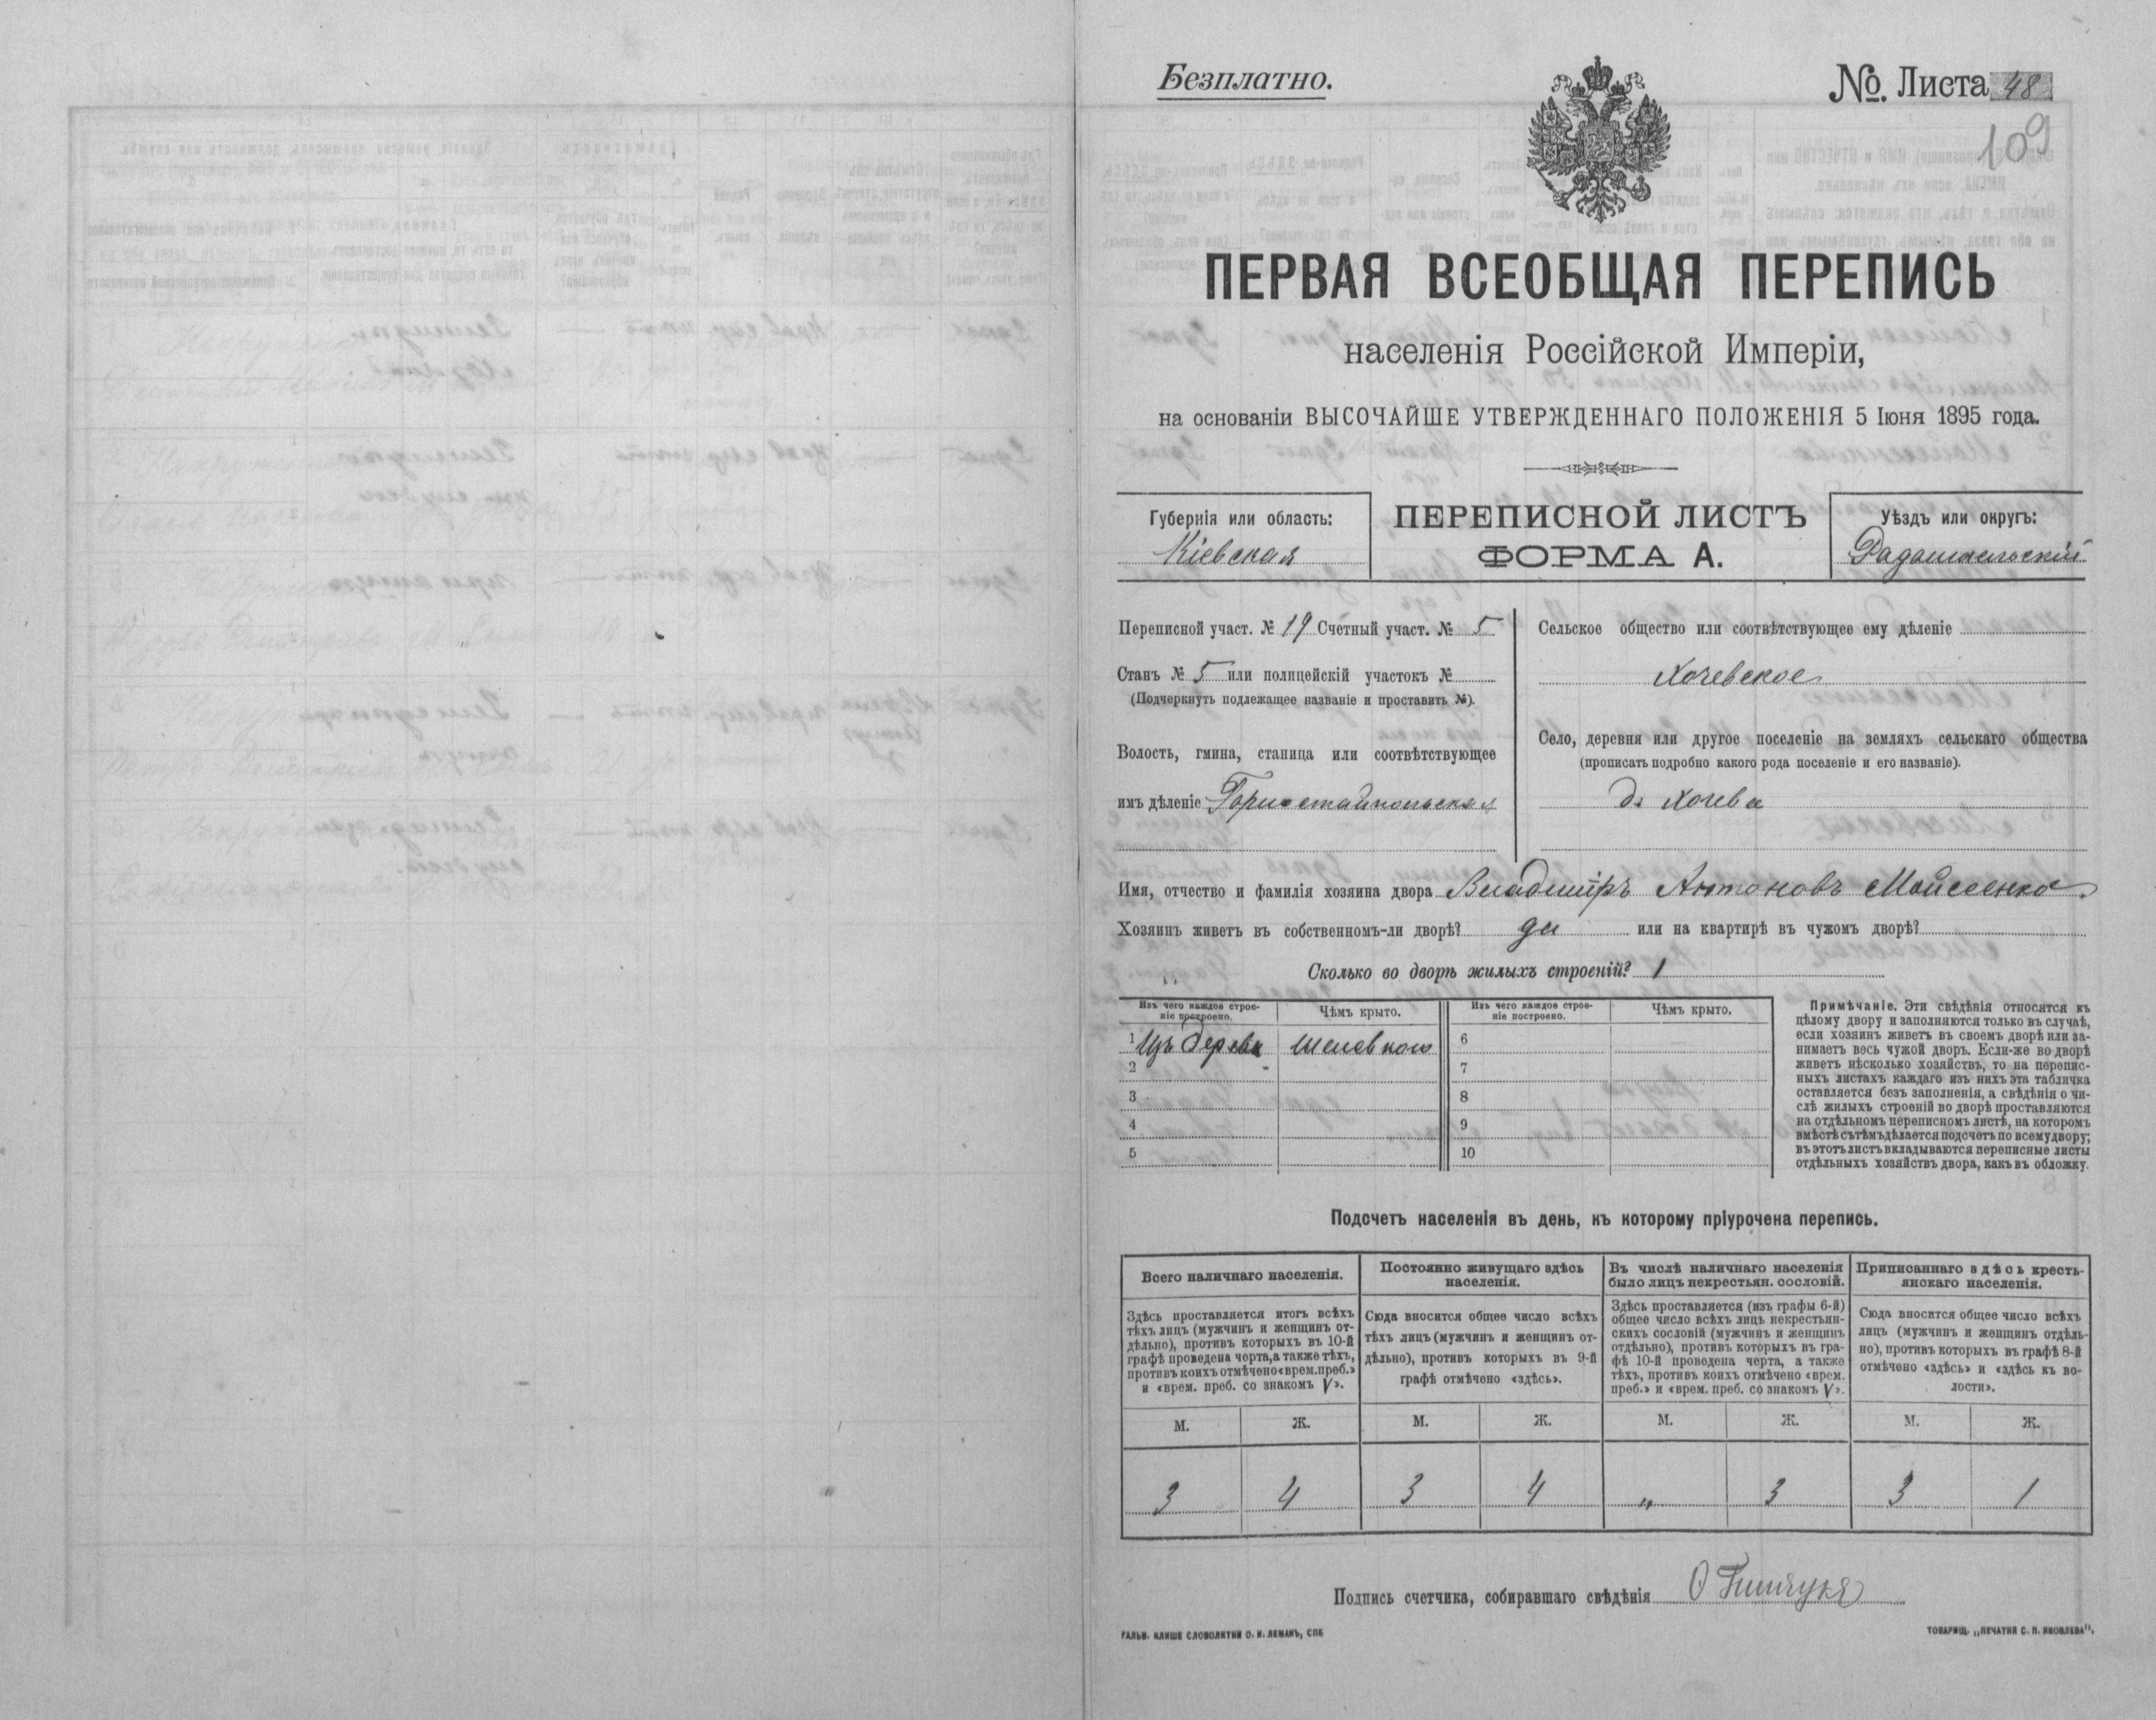 Безплатно.
№. Листа 48
109
ПЕРВАЯ ВСЕОБЩАЯ ПЕРЕПИСЬ
населенія Россійской Имперіи,
на основаніи ВЫСОЧАЙШЕ УТВЕРЖДЕННАГО ПОЛОЖЕНІЯ 5 Іюня 1895 года.
Губернія или область:
Кіевская
ПЕРЕПИСНОЙ ЛИСТЪ
ФОРМА А.
Уѣздъ или округъ:
Радомысльскій
Переписной участ. № 19 Счетный участ. № 5
Станъ № 5 или полицейскій участокъ №
(Подчеркнуть подлежащее названіе и проставить №).
Волость, гмина, станица или соотвѣтствующее
имъ дѣленіе Горностайпольская
Сельское общество или соотвѣтствующее ему дѣленіе
Хочевское
Село, деревня или другое поселеніе на земляхъ сельскаго общества
(прописать подробно какого рода поселеніе и его названіе).
д. Хочева
Имя, отчество и фамилія хозяина двора Владиміръ Антоновъ Мойсеенко
Хозяинъ живетъ въ собственномъ-ли дворѣ? да или на квартирѣ въ чужомъ дворѣ?
Сколько во дворѣ жилыхъ строеній? 1
Изъ чего каждое строе-
ніе построено.
Чѣмъ крыто.
Изъ чего каждое строе-
ніе построено.
Чѣмъ крыто.
1 Изъ дерева 6
2 7
3 8
4 9
5 10
Примѣчаніе. Эти свѣдѣнія относятся къ
цѣлому двору и заполняются только въ случаѣ,
если хозяинъ живетъ въ своемъ дворѣ или за-
нимаетъ весь чужой дворъ. Если-же во дворѣ
живетъ нѣсколько хозяйствъ, то на перепис-
ныхъ листахъ каждаго изъ нихъ эта табличка
оставляется безъ заполненія, а свѣдѣнія о чи-
слѣ жилыхъ строеній во дворѣ проставляются
на отдѣльномъ переписномъ листѣ, на которомъ
вмѣстѣ съ тѣмъ дѣлается подсчетъ по всему двору;
въ этотъ листъ вкладываются переписные листы
отдѣльныхъ хозяйствъ двора, какъ въ обложку.
Подсчетъ населенія въ день, къ которому пріурочена перепись.
Всего наличнаго населенія.
Здѣсь проставляется итогъ всѣхъ
тѣхъ лицъ (мужчинъ и женщинъ от-
дѣльно), противъ которыхъ въ 10-й
графѣ проведена черта, а также тѣхъ,
противъ коихъ отмѣчено «врем. преб.»
и «врем. преб. со знакомъ V».
Постоянно живущаго здѣсь
населенія.
Сюда вносится общее число всѣхъ
тѣхъ лицъ (мужчинъ и женщинъ от-
дѣльно), противъ которыхъ въ 9-й
графѣ отмѣчено «здѣсь».
Въ числѣ наличнаго населенія
было лицъ некрестьян. сословій.
Здѣсь проставляется (изъ графы 6-й)
общее число всѣхъ лицъ некрестьян-
скихъ сословій (мужчинъ и женщинъ
отдѣльно), противъ которыхъ въ гра-
фѣ 10-й проведена черта, а также
тѣхъ, противъ коихъ отмѣчено «врем.
преб.» и «врем. преб. со знакомъ V».
Приписаннаго здѣсь кресть-
янскаго населенія.
Сюда вносятся общее число всѣхъ
лицъ (мужчинъ и женщинъ отдѣль-
но), противъ которыхъ въ графѣ 8-й
отмѣчено «здѣсь» и «здѣсь къ во-
лости».
М. Ж. М. Ж. М. Ж. М. Ж.
3 4 3 4 „ 3 3 1
Подпись счетчика, собиравшаго свѣдѣнія
ГАЛЬВ. КЛИШЕ СЛОВОЛИТНИ О. И. ЛЕМАНЪ, СПБ
ТОВАРИЩ. „ПЕЧАТНЯ С. П. ЯКОВЛЕВА".